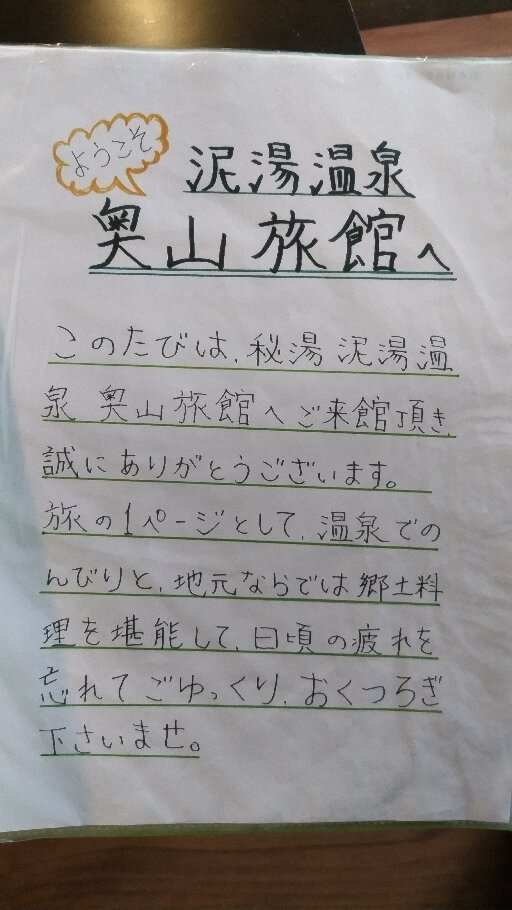 ようこそ
泥湯温泉
奥山旅館へ
このたびは、秘湯 泥湯温
泉 奥山旅館へご来館頂き
誠にありがとうございます。
旅の1ページとして、温泉での
んびりと、地元ならでは郷土料
理を堪能して、日頃の疲れを
忘れてごゆっくり、おくつろぎ
下さいませ。